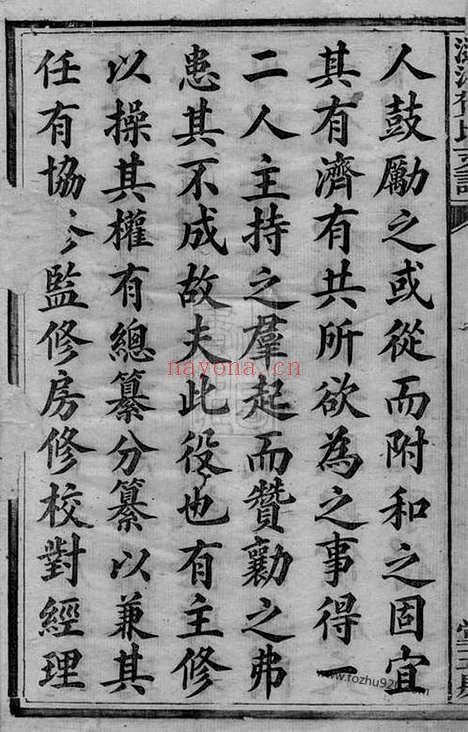 人鼓勵之或從而附和之固宜
其有濟有共所欲為之事得一
二人主持之羣起而贊勷之弗
患其不成故夫此役也有主修
以操其權有總纂分纂以兼其
任有協修監修房修校對經理
nayona.cn
www.fozhu920.com